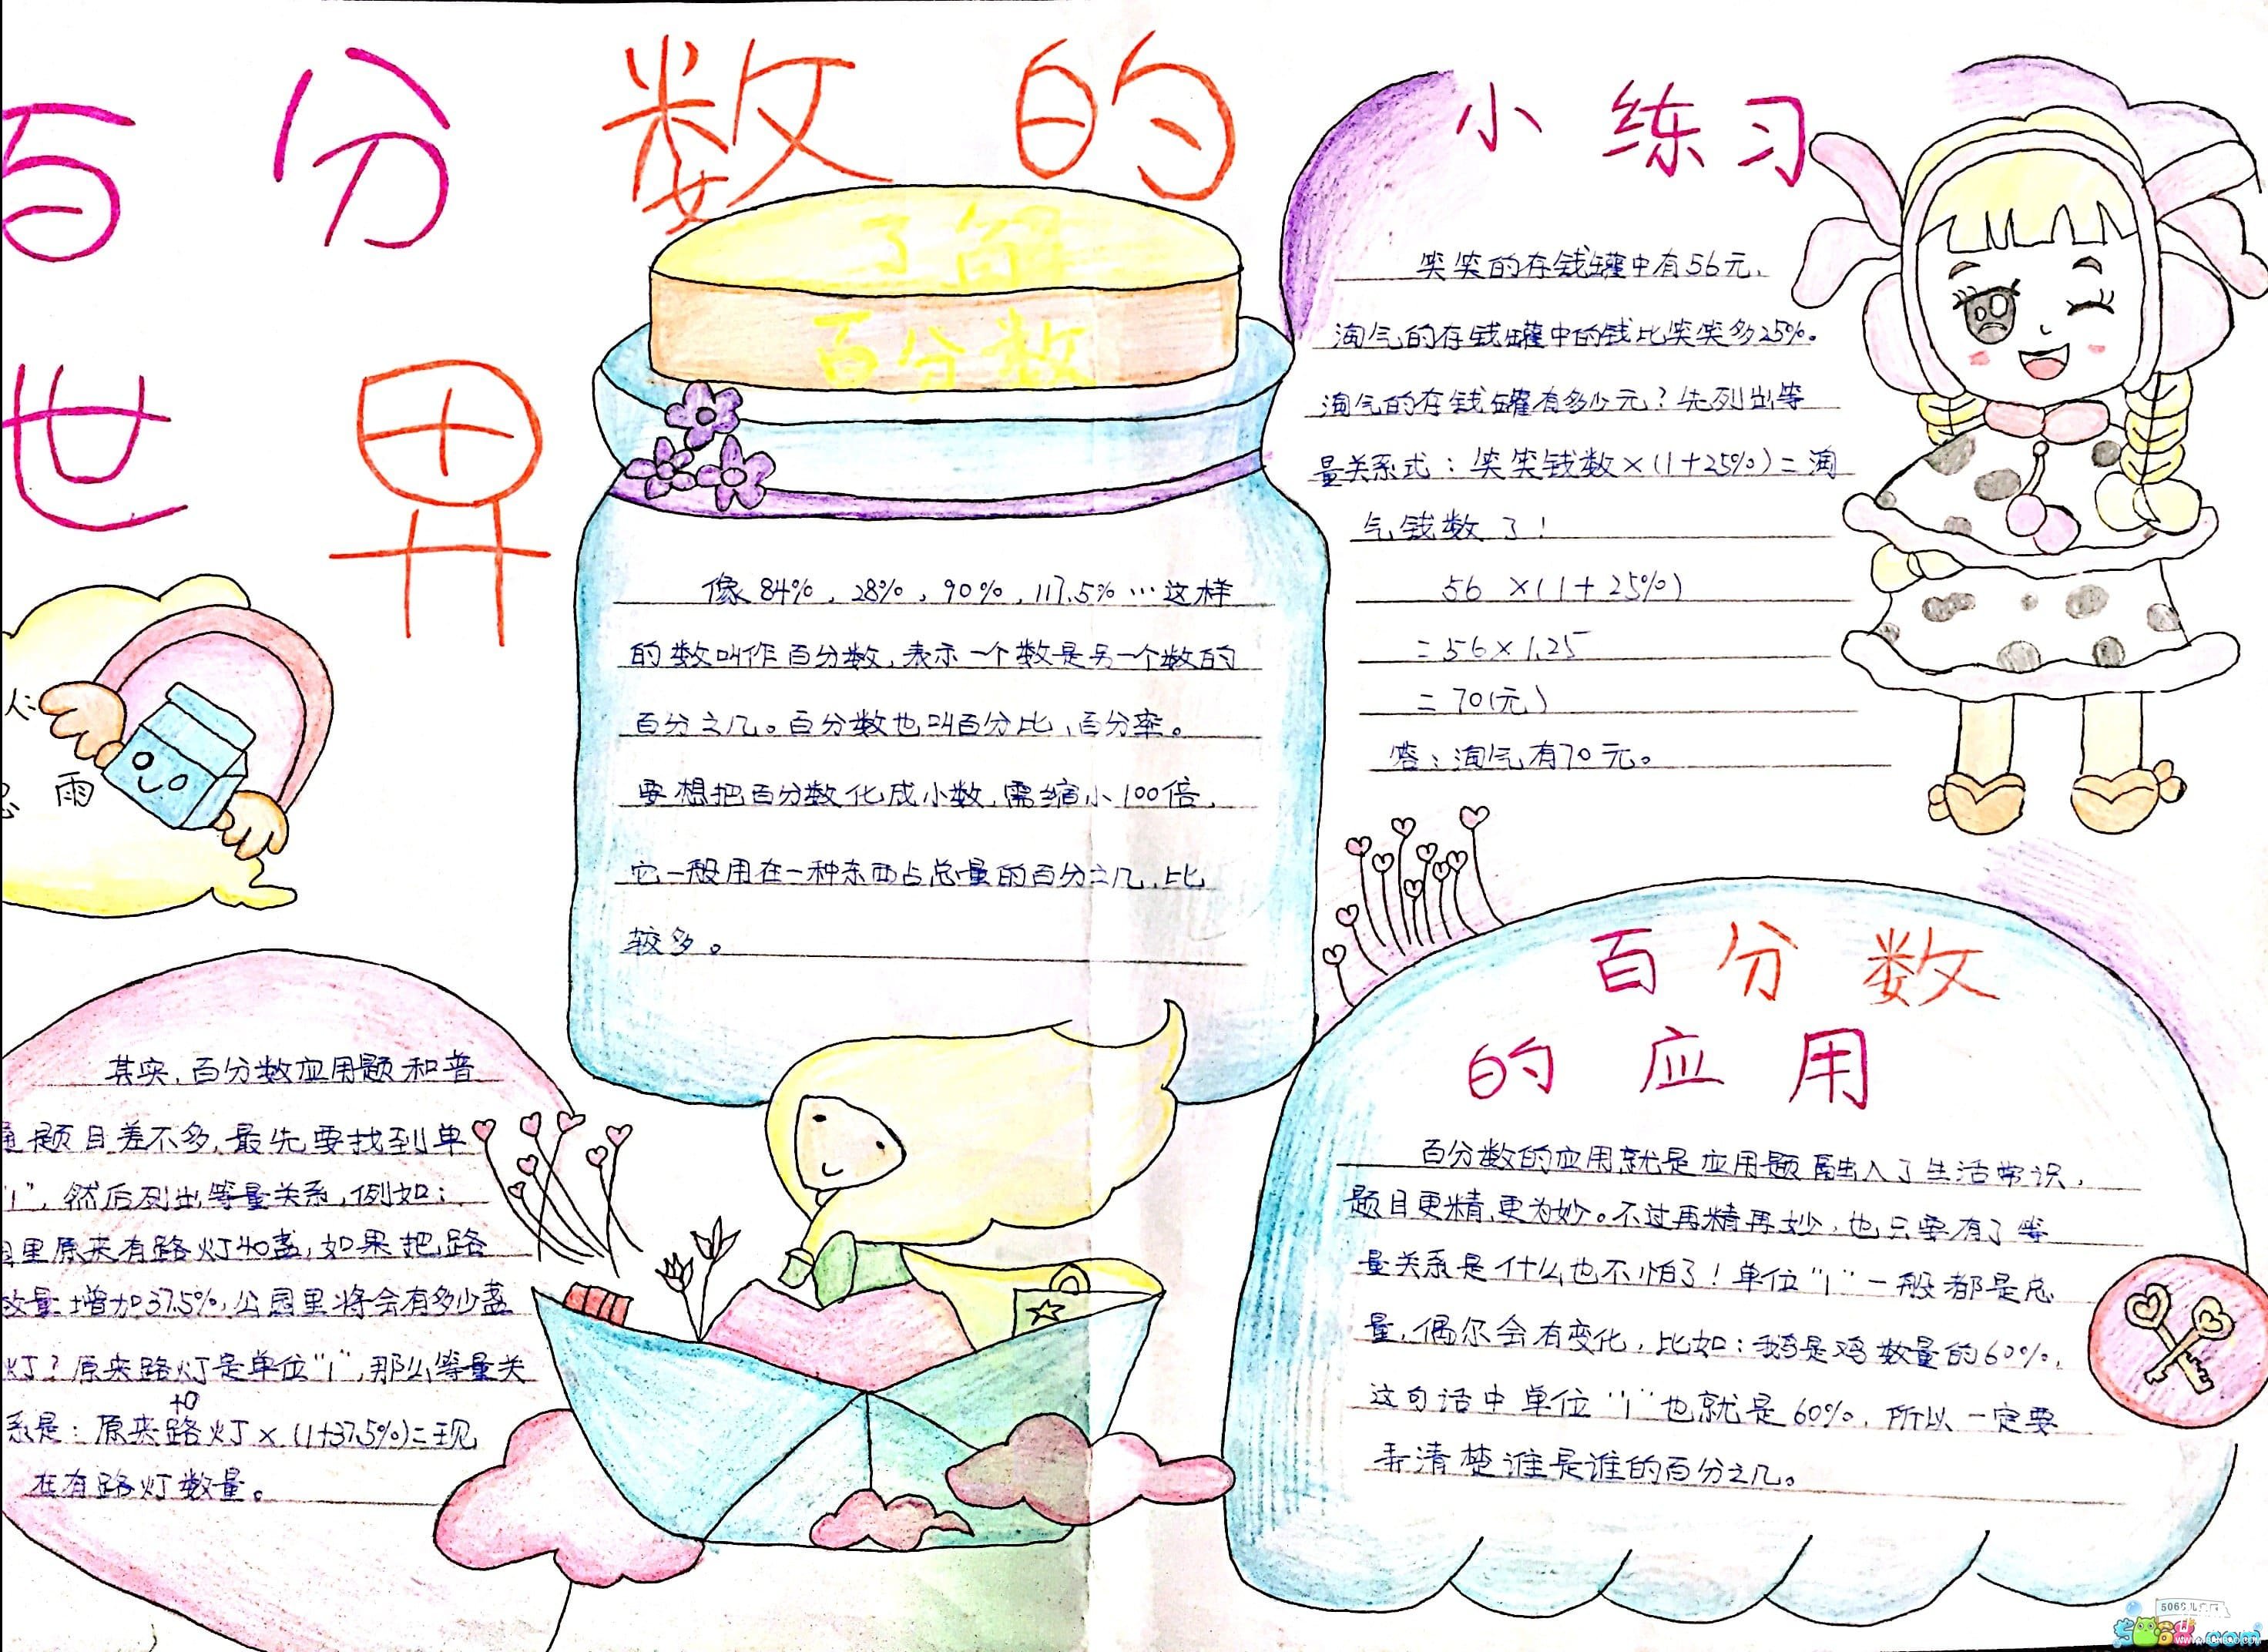 百分数的
世界
了解
百分数
像84%，28%，90%，117.5%…这样
的数叫作百分数，表示一个数是另一个数的
百分之几。百分数也叫百分比，百分率。
要想把百分数化成小数，需缩小100倍，
它一般用在一种东西占总量的百分之几，比
较多。
小练习
笑笑的存钱罐中有56元，
淘气的存钱罐中的钱比笑笑多25%。
淘气的存钱罐有多少元？先列出等
量关系式：笑笑钱数×(1+25%)=淘
气钱数了！
56×(1+25%)
=56×1.25
=70(元)
答：淘气有70元。
人：
雨
其实，百分数应用题和普
通题目差不多，最先要找到单
"1"，然后列出等量关系，例如：
园里原来有路灯40盏，如果把路
数量增加37.5%，公园里将会有多少盏
灯？原来路灯是单位"1"，那么等量关
系是：原来路灯×(1+37.5%)=现
在有路灯数量。
百分数
的应用
百分数的应用就是应用题融入了生活常识，
题目更精，更为妙。不过再精再妙，也只要有了等
量关系是什么也不怕了！单位"1"一般都是总
量，偶尔会有变化，比如：鹅是鸡数量的60%，
这句话中单位"1"也就是60%，所以一定要
弄清楚谁是谁的百分之几。